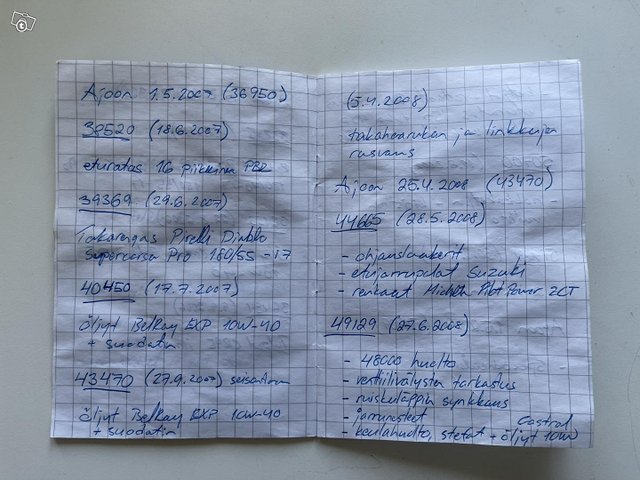 Ajoon 1.5.2007 (36950)
38520 (18.6.2007)
eturatas 16 piikkinen PBR
39369 (29.6.2007)
Takarengas Pirelli Diablo
Supercorsa Pro 180/55 -17
40450 (17.7.2007)
öljyt Belray EXP 10W-40
+ suodatin
43470 (27.9.2007) seisontaan
öljyt Belray EXP 10W-40
+ suodatin
(5.4.2008)
takahaarukan ja linkkujen
rasvaus
Ajoon 25.4.2008 (43470)
44665 (28.5.2008)
- ohjauslaakerit
- etujarrupalat Suzuki
- renkaat Michelin Pilot Power 2CT
49129 (27.6.2008)
- 48000 huolto
- venttiilivälysten tarkastus
- ruiskuläppien synkkaus
- jarrunesteet
- keulahuolto, stefat - öljyt Castrol 10W